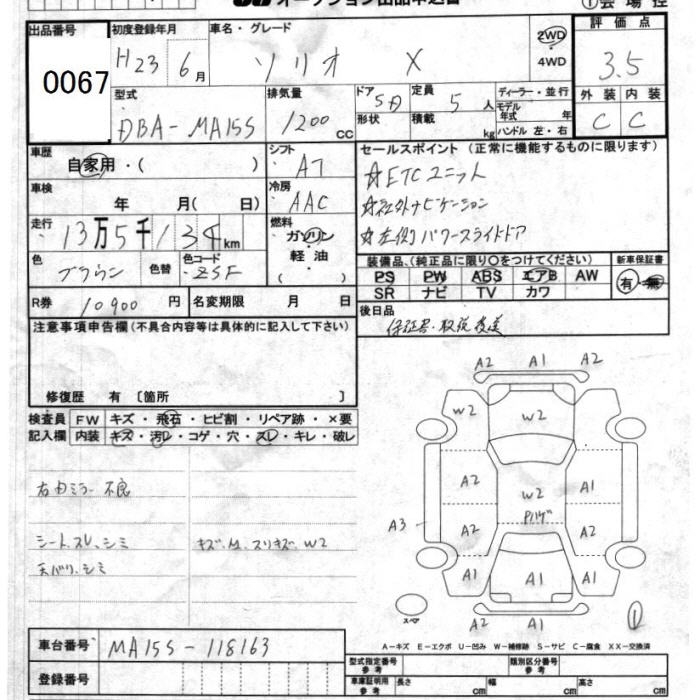 出品番号 初度登録年月 車名・グレード 評価点
0067 H23年6月 ソリオ X 2WD 4WD 3.5
型式 排気量 ドア 定員 ディーラー・並行 外装 内装
DBA-MA15S 1200cc 5D 5人 モデル年式 年 C C
形状 積載 kg ハンドル 左・右
車歴 シフト セールスポイント (正常に機能するものに限ります)
自家用・( ) AT ☆ETCユニット
車検 冷房 ☆社外ナビゲーション
年 月( 日) AAC ☆左側パワースライドドア
走行 燃料
13万5千134km ガソリン
軽油
( )
色 色替 色コード 装備品、(純正品に限り○をつけてください) 新車保証書
ブラウン ZSF PS PW ABS エアB AW 有・無
SR ナビ TV カワ
R券 名変期限 後日品
10900円 月 日 保証書・取説後送
注意事項申告欄(不具合内容等は具体的に記入して下さい)
修復歴 有 [箇所 ]
検査員 FW キズ・飛石・ヒビ割・リペア跡・×要
記入欄 内装 キズ・汚レ・コゲ・穴・スレ・キレ・破レ
右ドアミラー不良
シートスレ、シミ キズ・凹 スリキズ、W2
天バリ、シミ
A2 A1 A2
W2 W2
A2 A1
W2
Pハゲ
A3 A2 A2
A1 A1 A1
スペア
A2 A1 A2
①
A-キズ E-エクボ U-凹み W-補修跡 S-サビ C-腐食 XX-交換済
車台番号 MA15S-118163
登録番号
型式指定番号 参考 類別区分番号
車庫証明用 参考 長さ cm 幅 cm 高さ cm